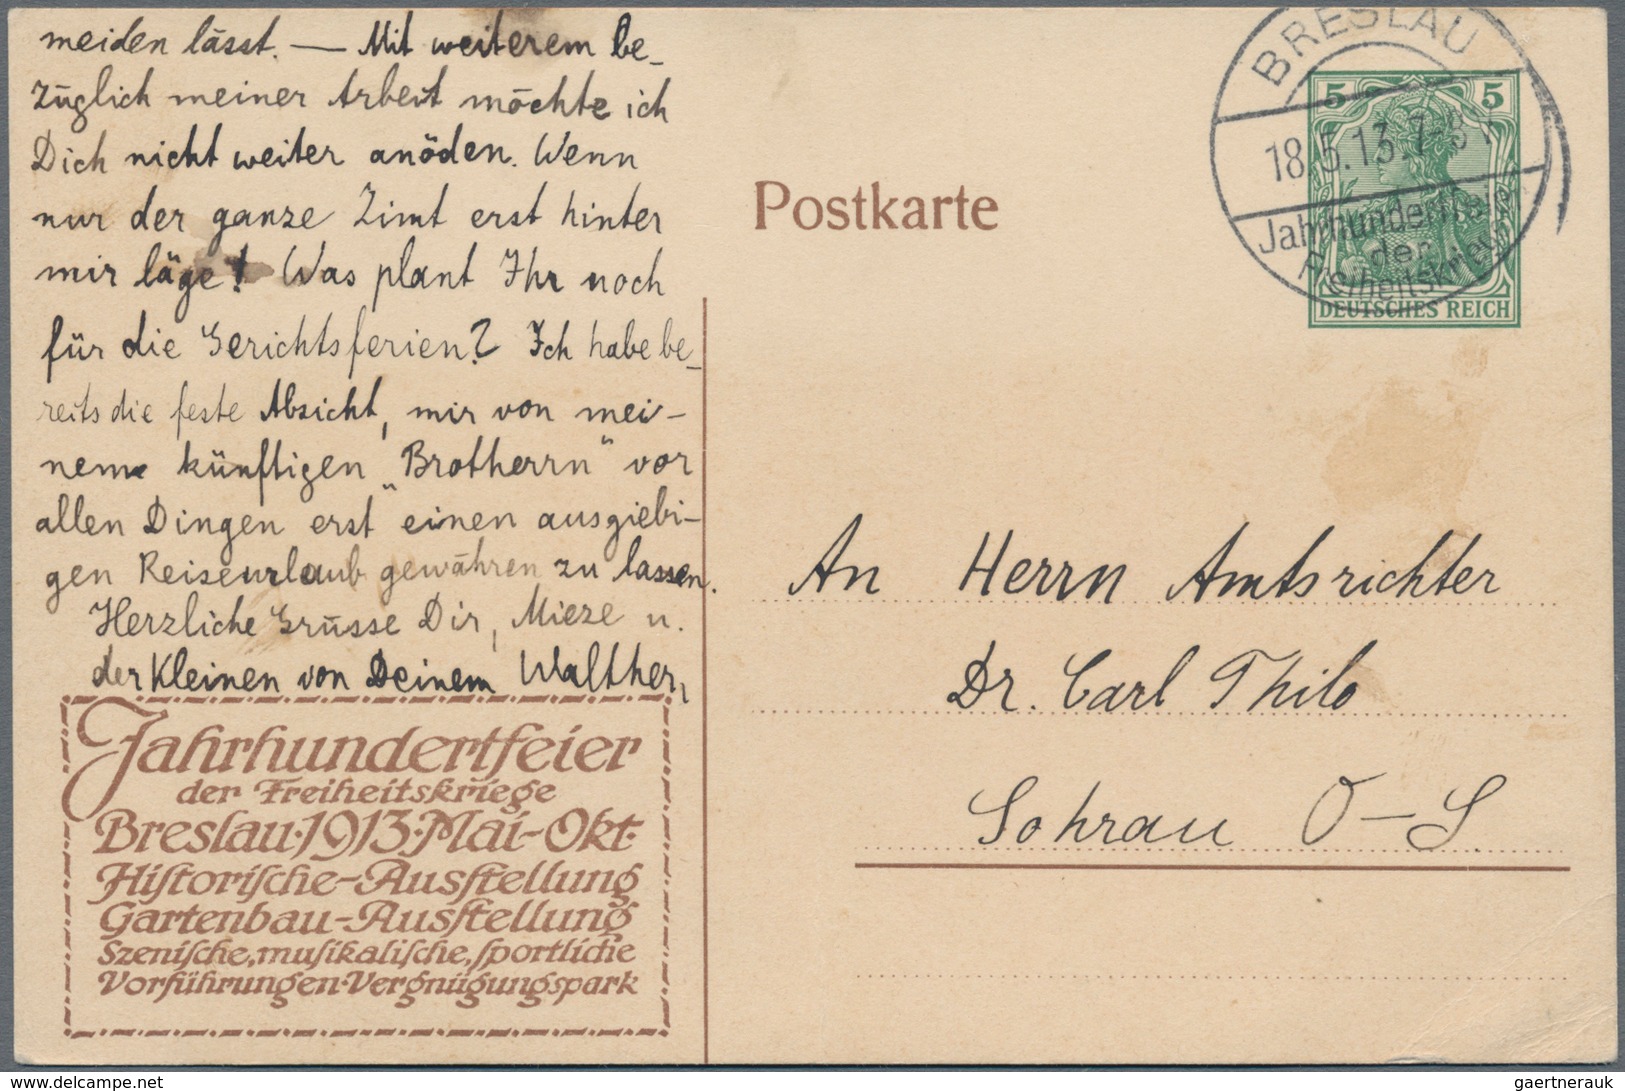 meiden lässt. — Mit weiterem be-
züglich meiner Arbeit möchte ich
Dich nicht weiter anöden. Wenn
nur der ganze Zimt erst hinter
mir läge! Was plant Ihr noch
für die Gerichtsferien? Ich habe be-
reits die feste Absicht, mir von mei-
nem künftigen „Brotherrn“ vor
allen Dingen erst einen ausgiebi-
gen Reiseurlaub gewähren zu lassen.
Herzliche Grüsse Dir, Mieze u.
der Kleinen von Deinem Walther,
Jahrhundertfeier
der Freiheitskriege
Breslau·1913·Mai-Okt·
Hiſtoriſche-Ausſtellung
Gartenbau-Ausſtellung
Szeniſche, muſikaliſche, ſportliche
Vorführungen·Vergnügungspark
Postkarte
BRESLAU
18.5.13.7-8
Jahrhundertfeier
der
Freiheitskriege
5 5
DEUTSCHES REICH
An Herrn Amtsrichter
Dr. Carl Thilo
Sohrau O-S.
www.delcampe.net
gaertnerauk